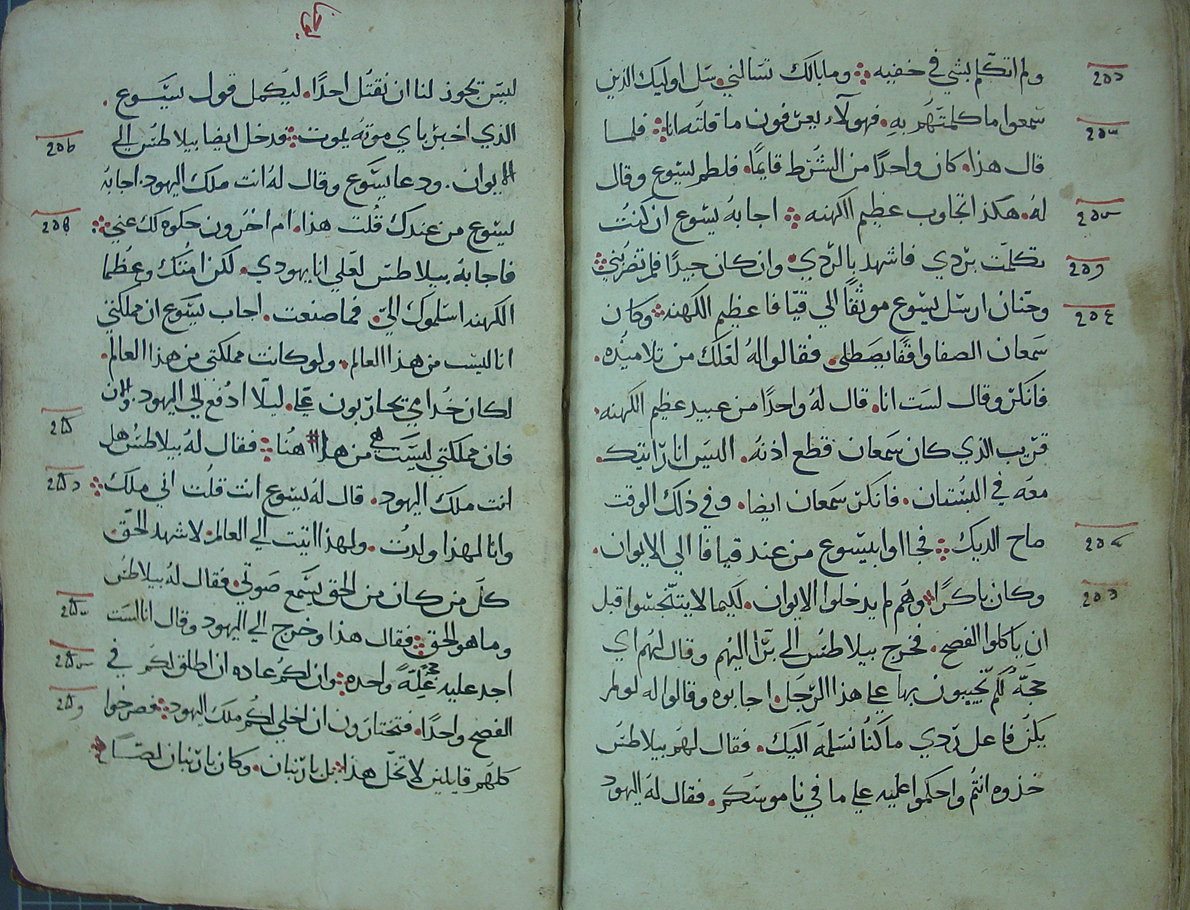 ولم اتكلم بشي في خفيه ومابالك تسالني سل اوليك الذين
سمعوا ما كلمتهم به فهولاء يعرفون ما قلته انا فلما
قال هذا كان واحدًا من الشرط قايمًا فلطم يسوع وقال
له هكذا تجاوب عظيم الكهنه اجابه يسوع ان كنت
تكلمت بردي فاشهد بالردي وان كان جيدًا فلم تضربني
وحنان ارسل يسوع موثقًا الي قيافا عظيم الكهنه وكان
سمعان الصفا واقفًا يصطلي فقالوا له لعلك من تلاميذه
فانكر وقال لست انا قال له واحدًا من عبيد عظيم الكهنه
قريب الذي كان سمعان قطع اذنه اليس انا رايتك
معه في البستان فانكر سمعان ايضا وفي ذلك الوقت
صاح الديك فجااوا بيسوع من عند قيافا الي الايوان
وكان باكرًا وهم لم يدخلوا الايوان لكيما لا يتنجسوا قبل
ان ياكلوا الفصح فخرج بيلاطس الي برًا اليهم وقال لهم اي
حجة لكم تجيبون بها علي هذا الرجل اجابوه وقالوا له لو لم
يكن فاعل ردي ما كنا نسلمه اليك فقال لهم بيلاطس
خذوه انتم واحكموا عليه علي ما في ناموسكم فقال له اليهود
ليس تجوز لنا ان نقتل احدًا ليكمل قول يسوع
الذي اخبر باي موته يموت فدخل ايضا بيلاطس الي
الايوان ودعا يسوع وقال له انت ملك اليهود اجابه
يسوع من عندك قلت هذا ام اخرون حكوه لك عني
فاجابه بيلاطس لعلي انا يهودي لكن امتك وعظما
الكهنه اسلموك الي فما صنعت اجاب يسوع ان مملكتي
انا ليست من هذا العالم ولو كانت مملكتي من هذا العالم
لكان خدامي يحاربون عني ليلا ادفع الي اليهود والان
فان مملكتي ليست هي من هاهنا فقال له بيلاطس هل
انت ملك اليهود قال له يسوع انت قلت اني ملك
وانا لهذا ولدت ولهذا اتيت الي العالم لاشهد للحق
كل من كان من الحق يسمع صوتي فقال له بيلاطس
وما هو الحق فقال هذا وخرج الي اليهود وقال انا لست
اجد عليه علة واحده وان لكم عاده ان اطلق لكم في
الفصح واحدًا فتختارون ان اخلي لكم ملك اليهود فصرخوا
كلهم قايلين لا تخل هذا بل بارنبان وكان بارنبان لصًا